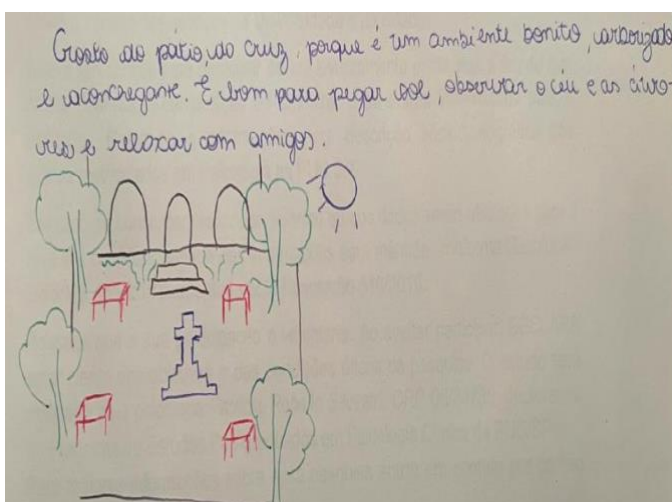 Gosto do pátio, da cruz, porque é um ambiente bonito, arborizado
e aconchegante. É bom para pegar sol, observar o céu e as árvo-
res e relaxar com amigos.